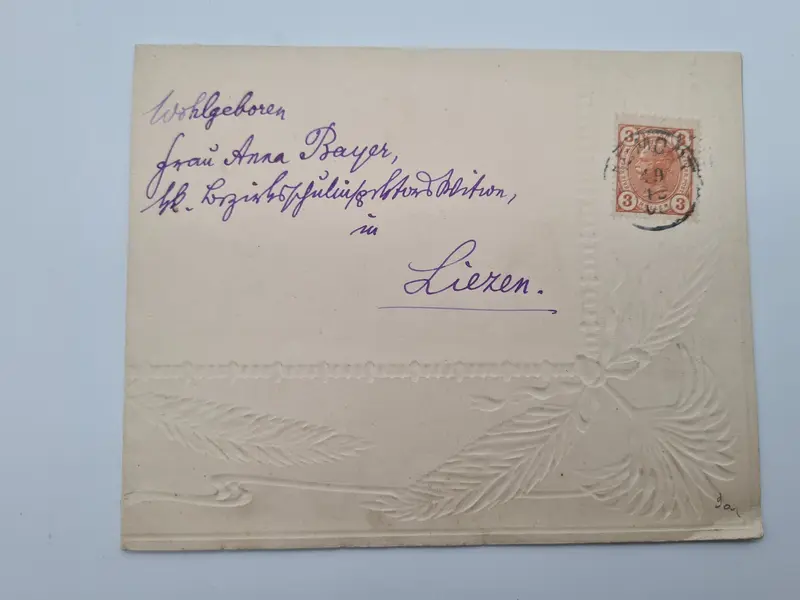 Wohlgeboren
Frau Anna Bayer,
kk. Bezirksschulinspektors Witwe,
in
Liezen.
3 3
3 3